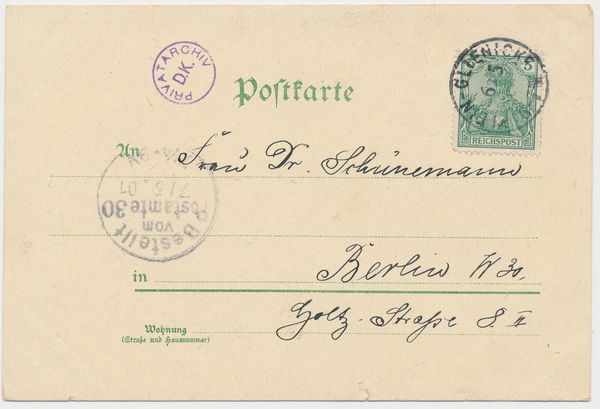 PRIVATARCHIV
D.K.
Postkarte
KLEIN-GLIENICKE
6 5
REICHSPOST
An Frau Dr. Schünemann
Bestellt
vom
Postamte 30
7/5.01
in Berlin W 30.
Goltz-Straße 8 II
Wohnung
(Straße und Hausnummer)